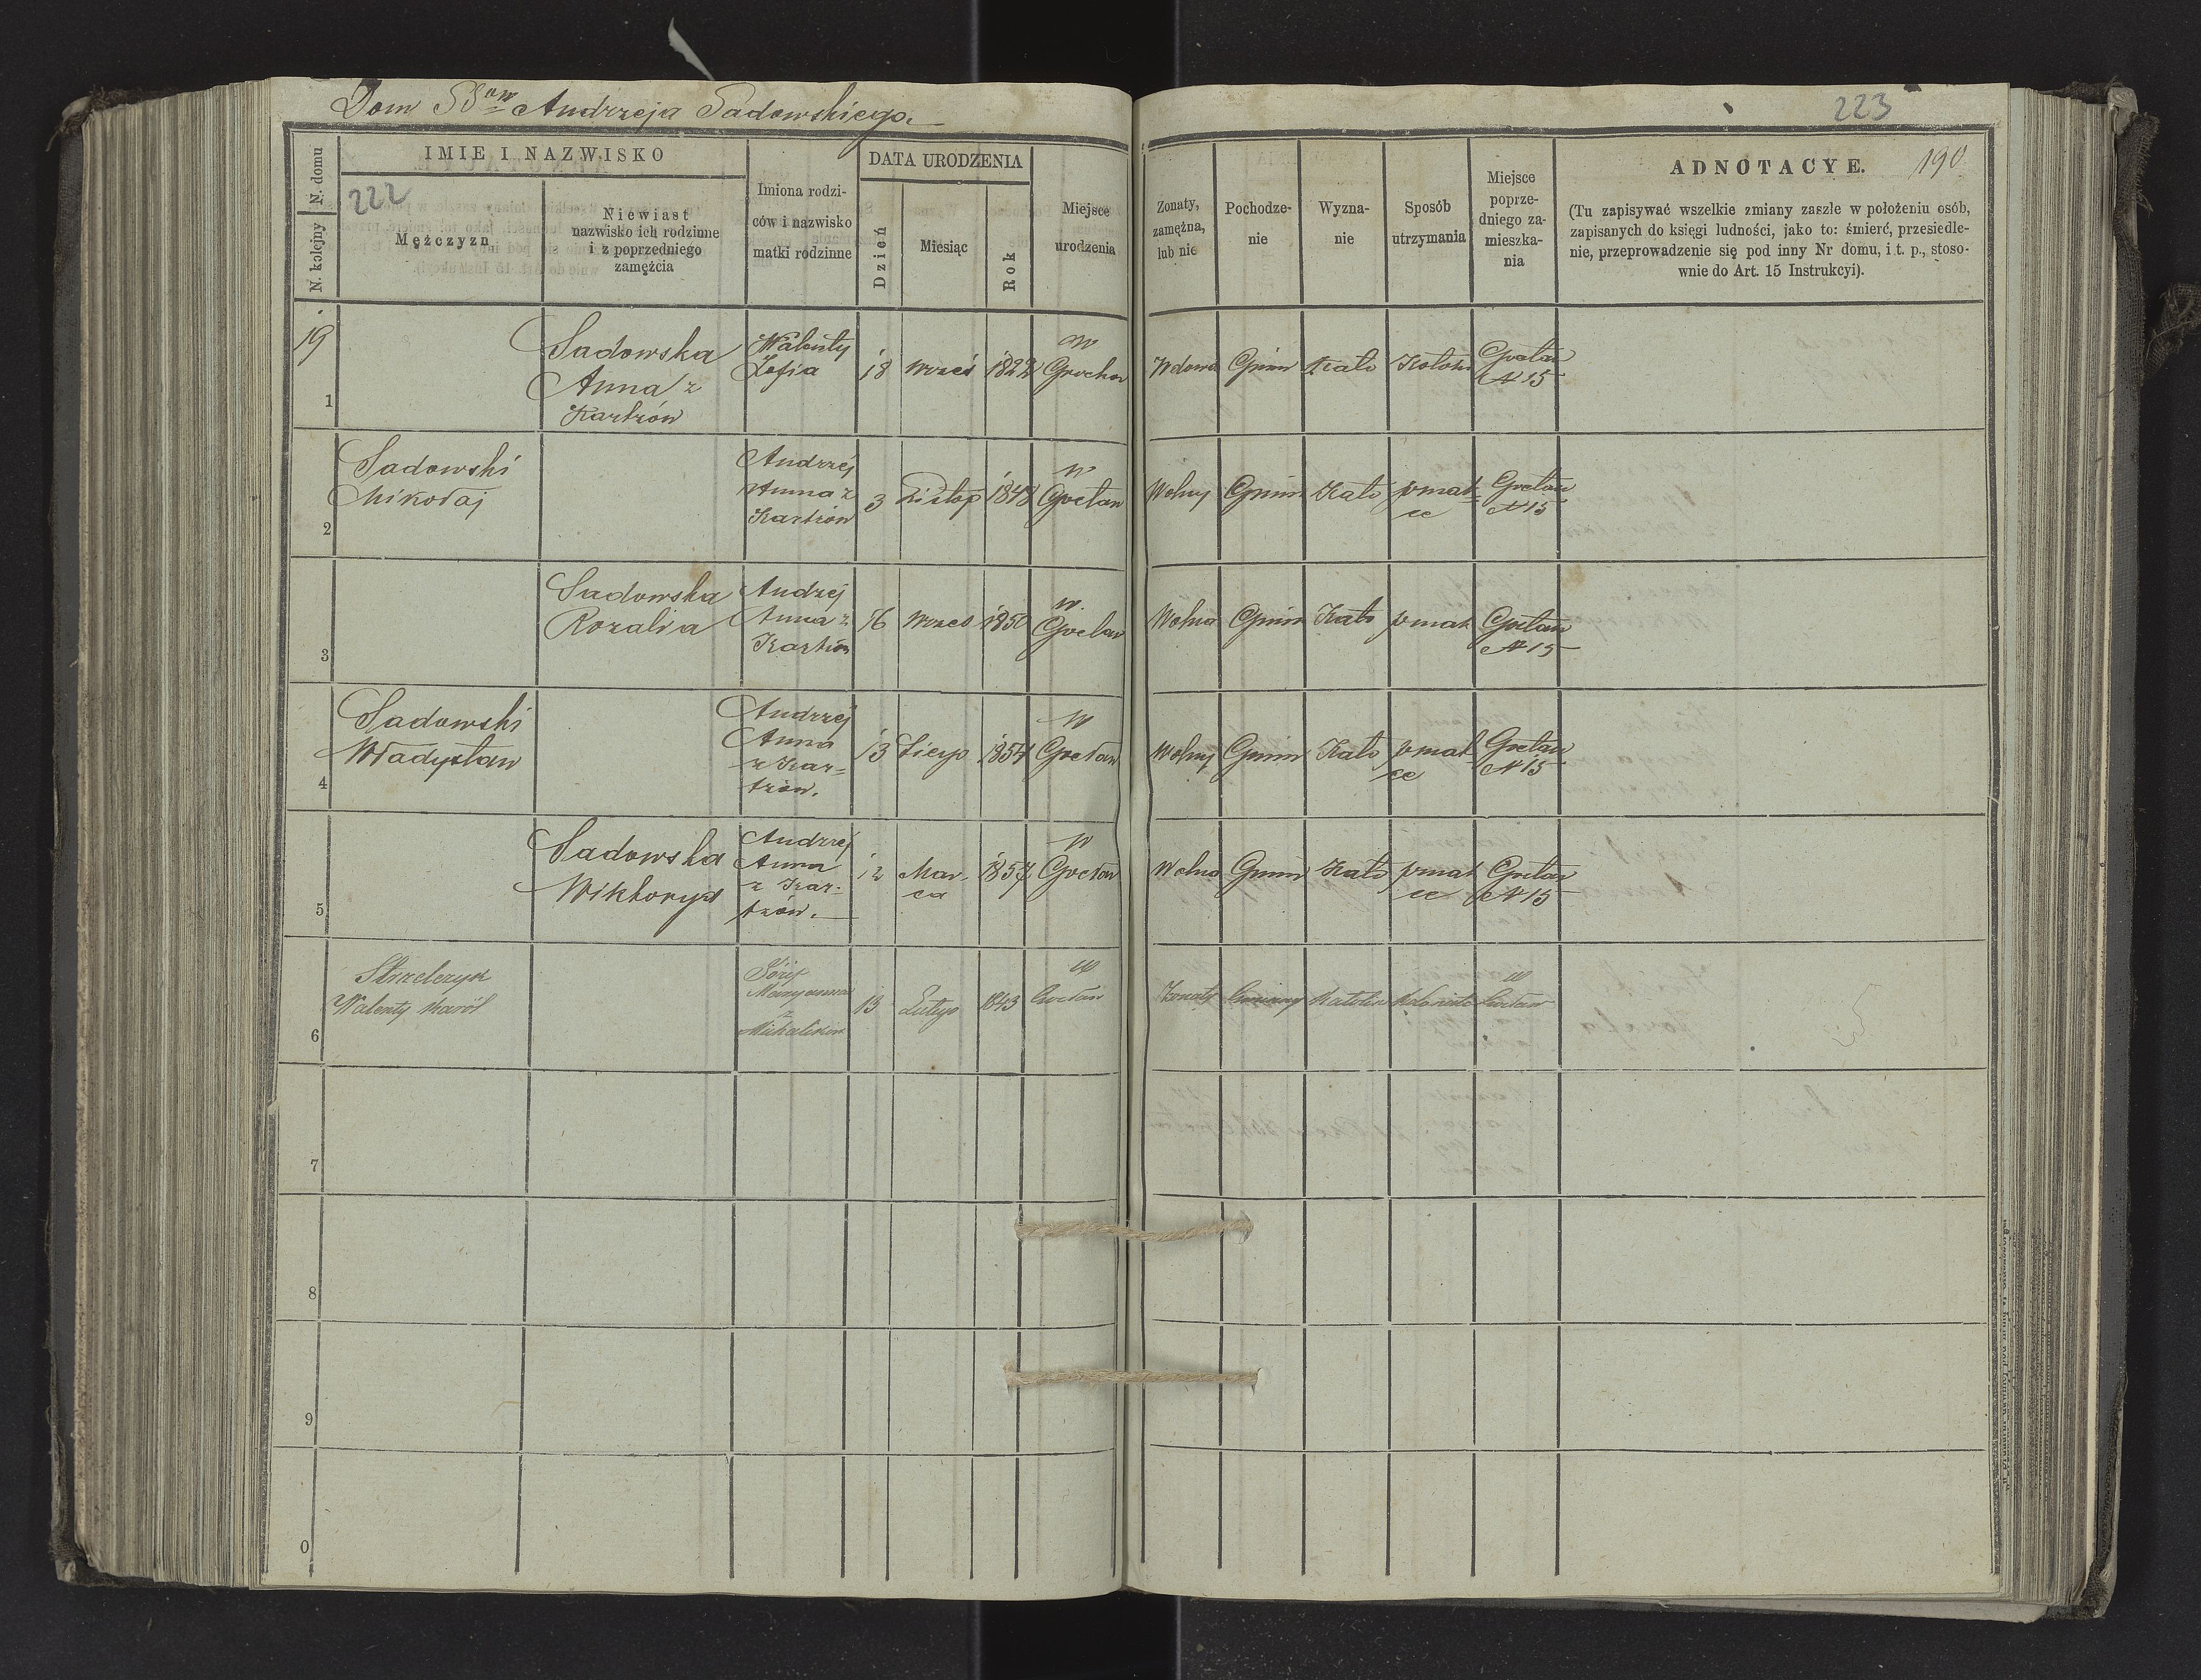 Dom Andrzeja Sadowskiego.
223
N. kolejny N. domu
IMIE I NAZWISKO
222
Mężczyzn
Niewiast
nazwisko ich rodzinne
i z poprzedniego
zamężcia
Imiona rodzi-
ców i nazwisko
matki rodzinne
DATA URODZENIA
Dzień
Miesiąc
Rok
Miejsce
urodzenia
Żonaty,
zamężna,
lub nie
Pochodze-
nie
Wyzna-
nie
Sposób
utrzymania
Miejsce
poprze-
dniego za-
mieszka-
nia
ADNOTACYE.
190
(Tu zapisywać wszelkie zmiany zaszłe w położeniu osób,
zapisanych do księgi ludności, jako to: śmierć, przesiedle-
nie, przeprowadzenie się pod inny Nr domu, i t. p., stoso-
wnie do Art. 15 Instrukcyi).
19
1
Sadowska
Anna z
Walenty
Zofia
18
wrześ
1822
w
Grochow
Wdowa
Gmin
Kato
Kolon
Gocław
N 15
2
Sadowski
Mikołaj
Andrzej
Anna z
3
Listop
1848
w
Gocław
Wolny
Gmin
Kato
p. mat-
ce
Gocław
N 15
3
Sadowska
Rozalia
Andrzej
Anna z
16
wrześ
1850
w
Gocław
Wolna
Gmin
Kato
p mat
Gocław
N 15
4
Sadowski
Władysław
Andrzej
Anna
z Kar-
13
Lieyp
1854
w
Gocław
Wolny
Gmin
Kato
p mat
ce
Gocław
N 15
5
Sadowska
Wiktorya
Andrzej
Anna
z Kar-
12
Mar-
ca
1857
w
Gocław
Wolna
Gmin
Kato
p mat
ce
Gocław
N 15
6
Strzelczyk
Walenty Karól
Józef
Maryanna
z
Michalików
13
Lutego
1843
w
Gocław
Żonaty
Gminny
Katolik
Kolonista
w
Gocław
7
8
9
0